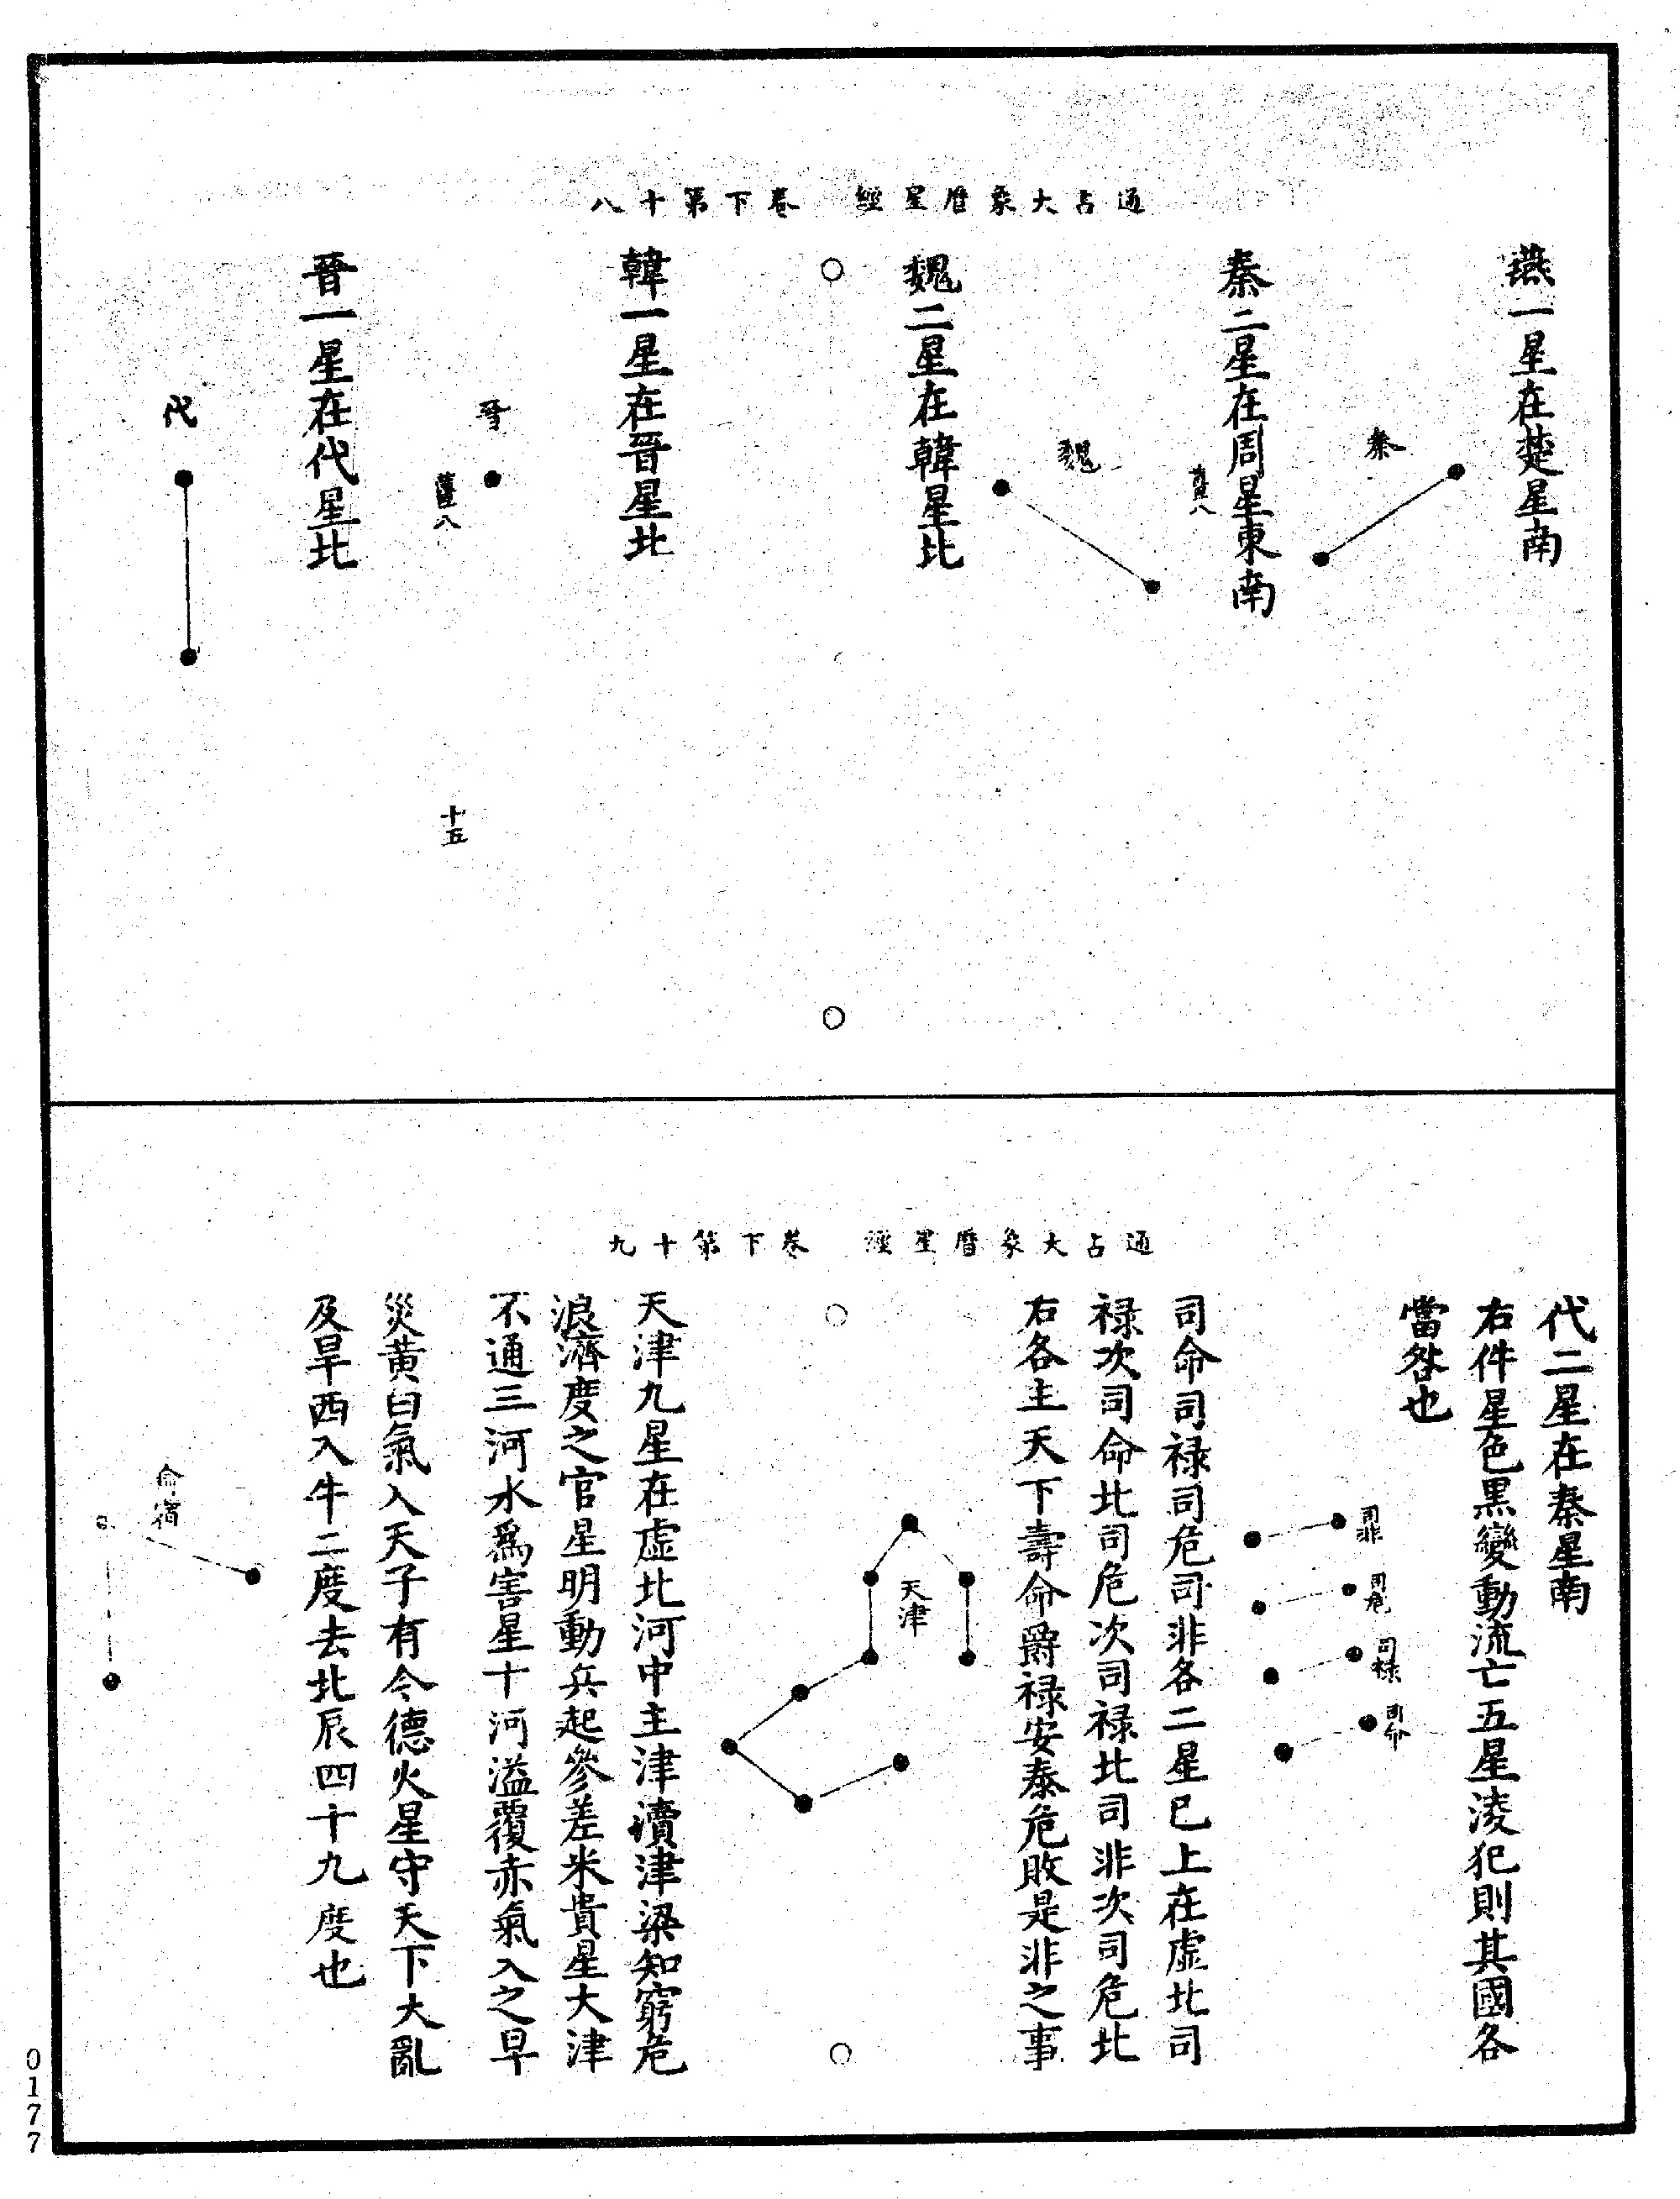 通占大象曆星經　卷下第十八
燕一星在楚星南
秦
秦二星在周星東南
魏
魏二星在韓星北
韓一星在晉星北
晉
十五
晉一星在代星北
代
通占大象曆星經　卷下第十九
代二星在秦星南
右件星色黑變動流亡五星淩犯則其國各
當咎也
司非
司危
司祿
司命
司命司禄司危司非各二星已上在虛北司
禄次司命北司危次司禄北司非次司危北
右各主天下壽命爵禄安泰危敗是非之事
天津
天津九星在虛北河中主津瀆津梁知窮危
浪濟度之官星明動兵起參差米貴星大津
不通三河水為害星十河溢覆赤氣入之旱
災黃白氣入天子有令德火星守天下大亂
及旱西入牛二度去北辰四十九度也
0177